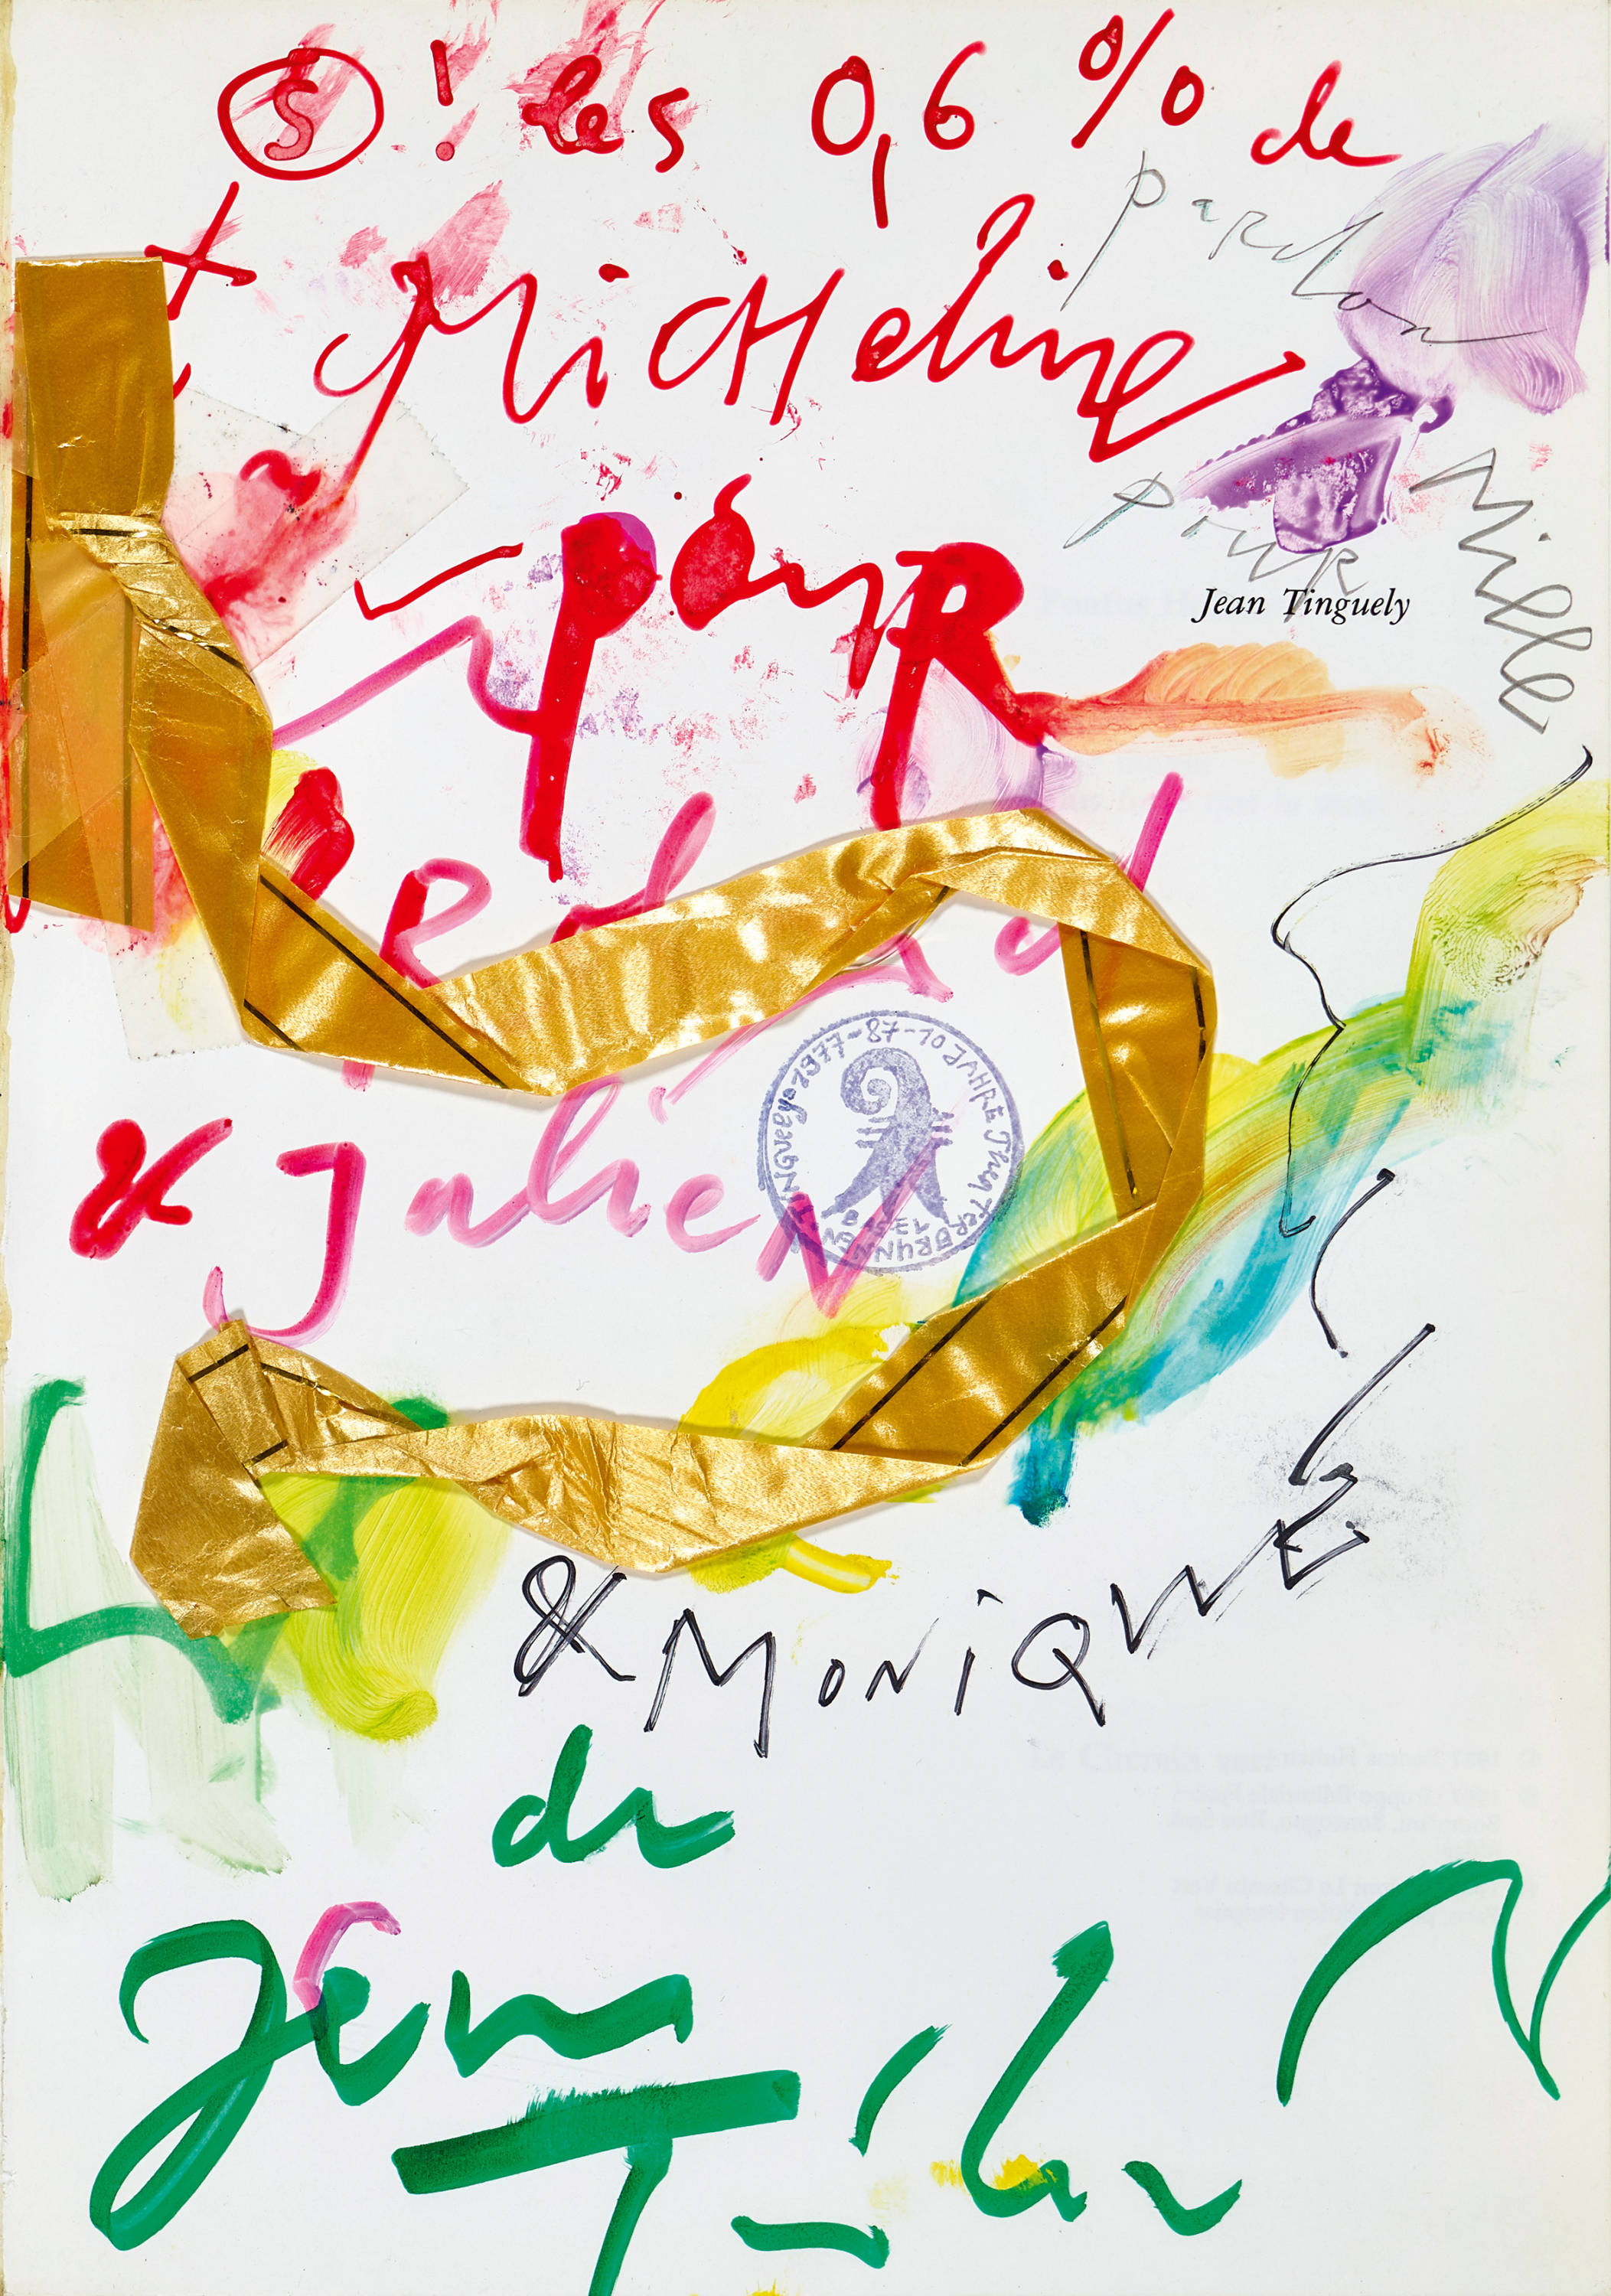 S ! les 0,6 % de
Micheline
pardon
pour
Mille
pour
Jean Tinguely
& Julien
TINGUELY 1977-87-10 JAHRE THEATERBRUNNEN
BASEL
& MONIQUE
de
Jean